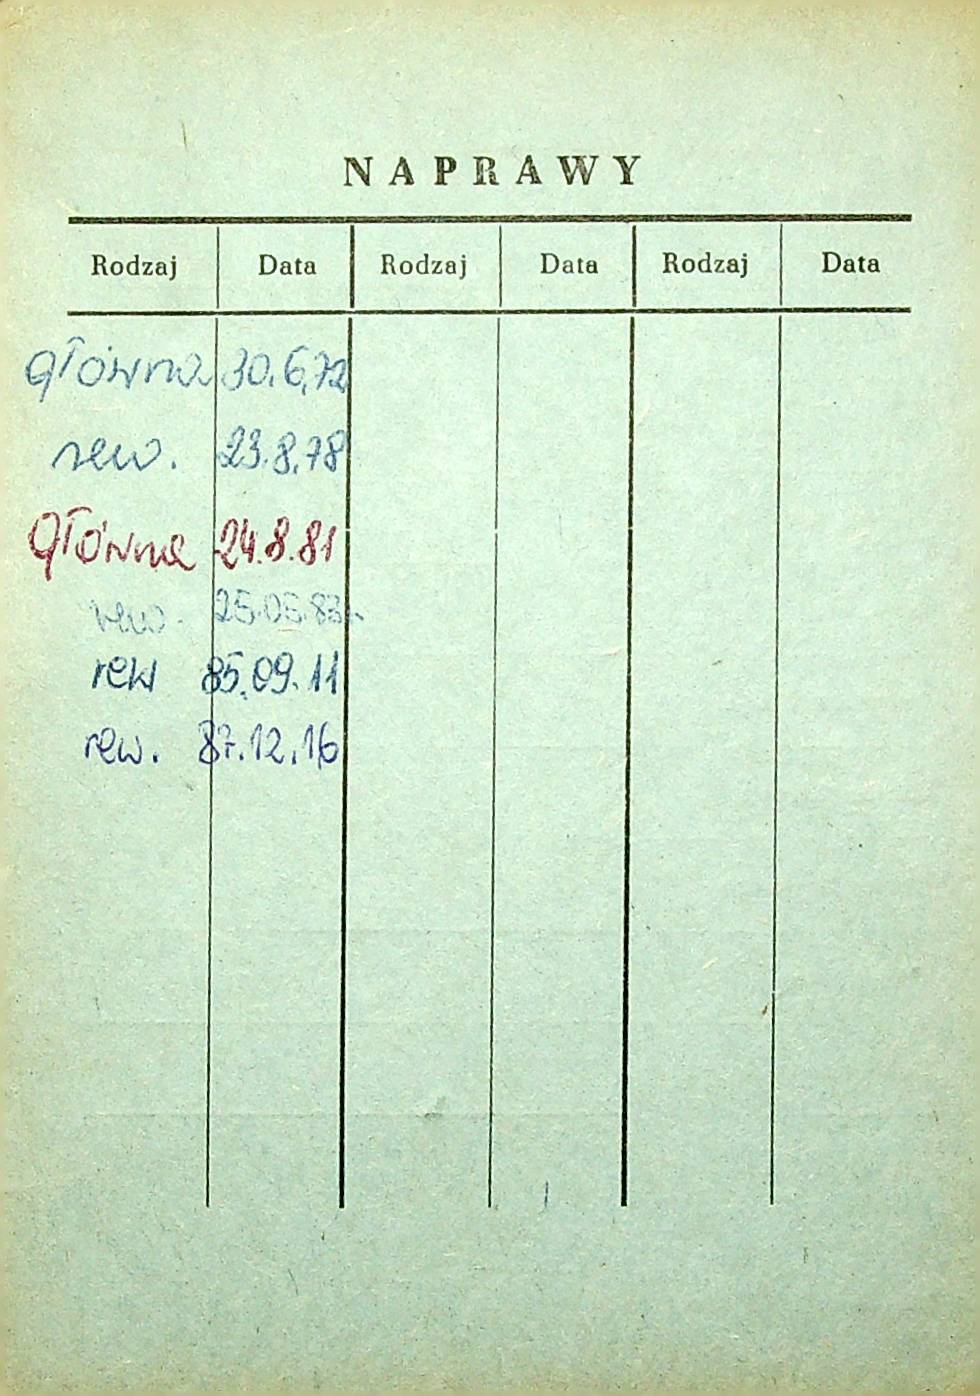 NAPRAWY
Rodzaj Data Rodzaj Data Rodzaj Data
główna 30.6.72
rew. 23.8.78
główna 24.8.81
rew. 25.05.83r.
85.09.11
rew. 87.12.16